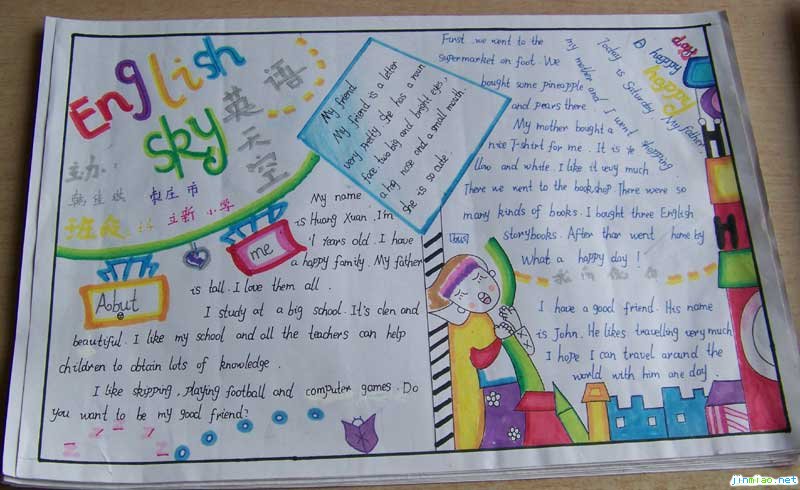 English
sky
英语
天空
主办:
枣庄市
立新小学
Aobut
me
My name
is Huang Xuan. I'm
11 Years old. I have
a happy family. My father
is tall. I love them all.
I study at a big school. It's clen and
beautiful. I like my school and all the teachers can help
children to obtain lots of knowledge.
I like skipping, playing football and computer games. Do
you want to be my good friend?
My friend
My friend is a letter
very pretty She has a roun
face two big and bright eyes,
a big nose and a small mouth.
She is so cute.
A happy
day
happy
Today is Saturday. My father
my mother and I went shopping.
First we went to the
supermarket on foot. We
bought some pineapple
and pears there
My mother bought a
nice T-shirt for me. It is ye
llao and white. I like it very much.
There we went to the bookshop. There were so
many kinds of books. I bought three English
storybooks. After that went home by
What a happy day!
I have a good friend. His name
is John. He likes travelling very much
I hope I can travel around the
world with him one day.
H
H
jinmiao.net